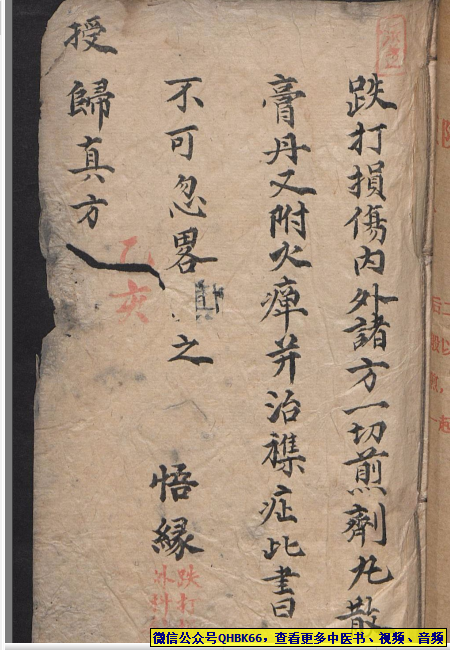 跌打損傷内外諸方一切煎劑九散
膏丹又附火瘴并治襍症此書曰
不可忽畧之
悟緣
授歸真方
乙亥
跌打
外科
微信公众号QHBK66，查看更多中医书、视频、音频